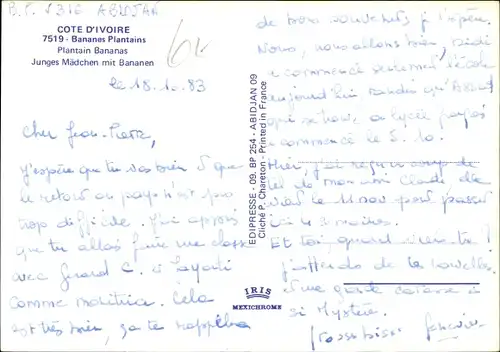 B.P. 8316 ABIDJAN
COTE D'IVOIRE
7519 - Bananes Plantains
Plantain Bananas
Junges Mädchen mit Bananen
le 18.10.83
Cher Jean-Pierre,
J'espère que tu vas bien & que
le retour au pays n'est pas
trop difficile. J'ai appris
que tu allais faire une classe
avec Gérard C. à
comme Cela
est très bien, ça te rappellera
EDIPRESSE - 09. BP 254 - ABIDJAN 09
Cliché P. Chareton - Printed in France
IRIS
MEXICHROME
de bons souvenirs j'espère.
Nous, nous allons bien,
a commencé seulement l'école
aujourd'hui tandis que
qui se trouve au lycée français
a commencé le 5.10.
Hier, j'ai reçu un coup de
tel de mon ami Claude
le 11 nov pour passer
ici 3 semaines.
Et toi quand viens-tu ?
J'attends de tes nouvelles
une caresse à
Mystère.
Grosses bises